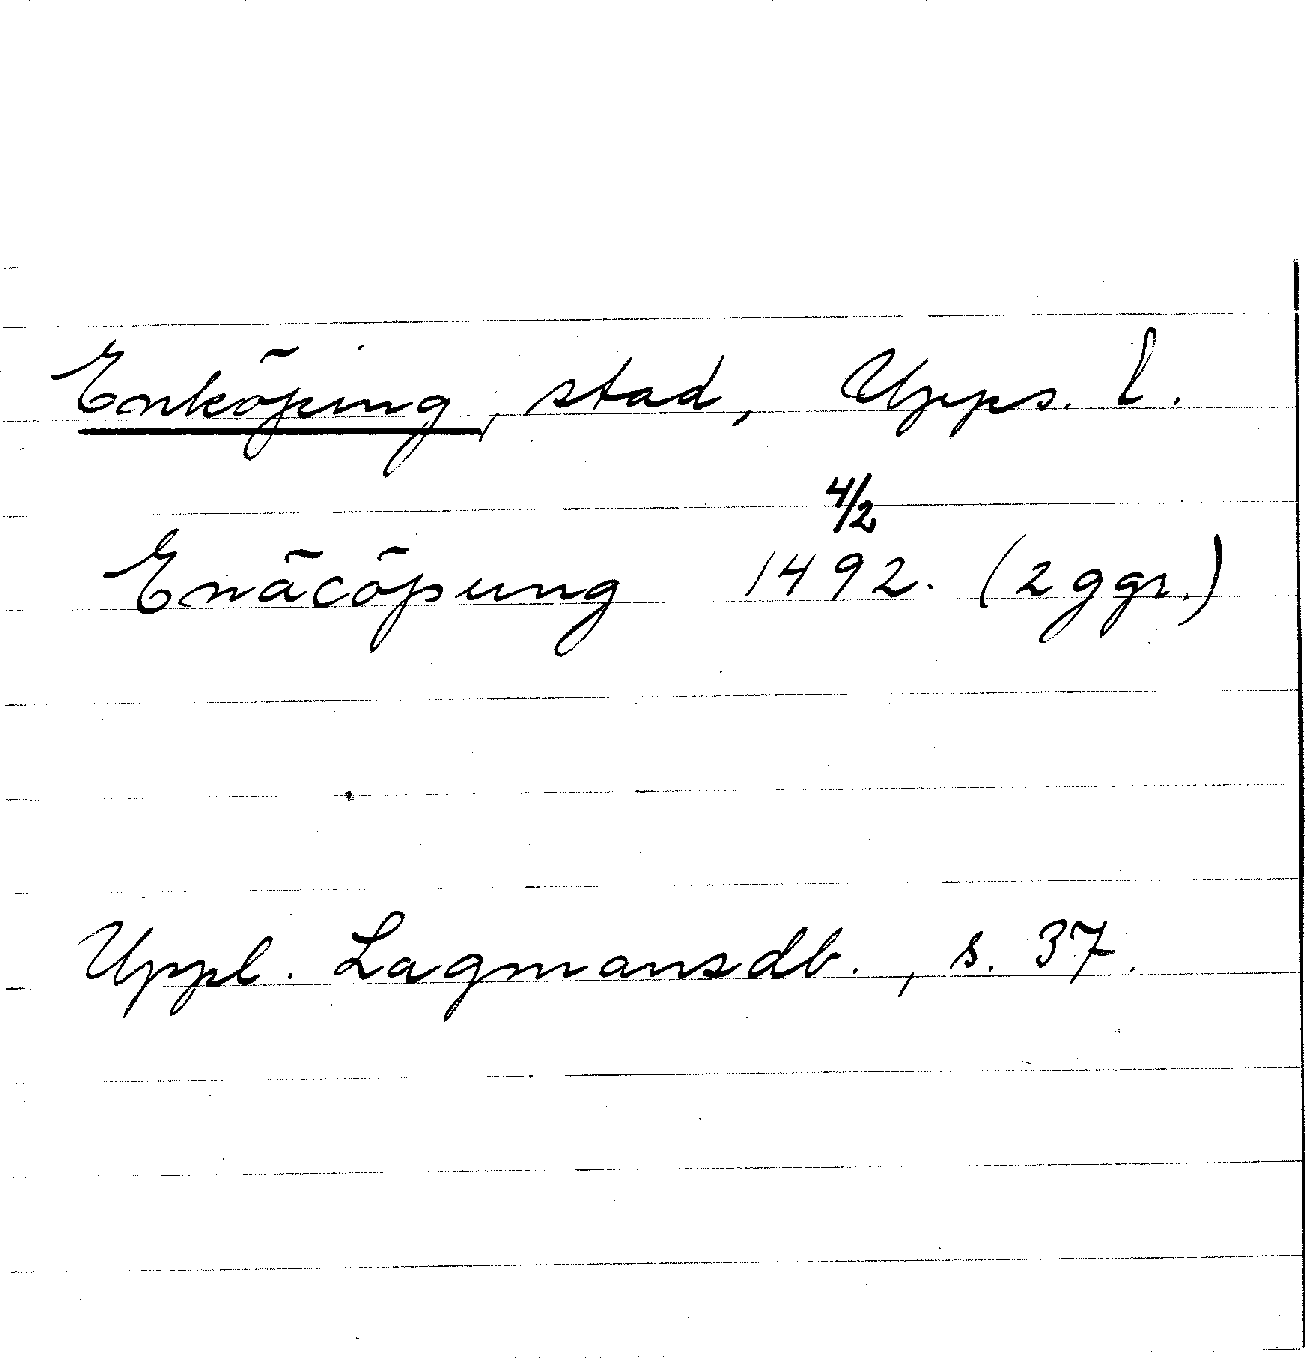 Enköping, stad, Upps. l.
4/2
Enäcöpung 1492. (2 ggr.)
Uppl. Lagmansdb., s. 37.